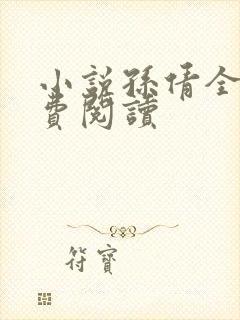 小說孫倩全
費閱讀
符寶